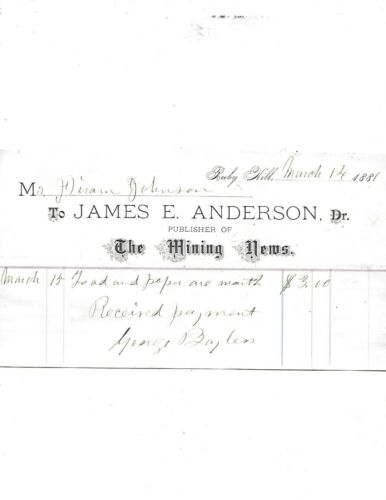 Ruby Hill, March 14 1880
Mr. Hiram Johnson
To JAMES E. ANDERSON, Dr.
PUBLISHER OF
The Mining News.
March 15 and paper one month $ 3.00
Received payment
George Bayless